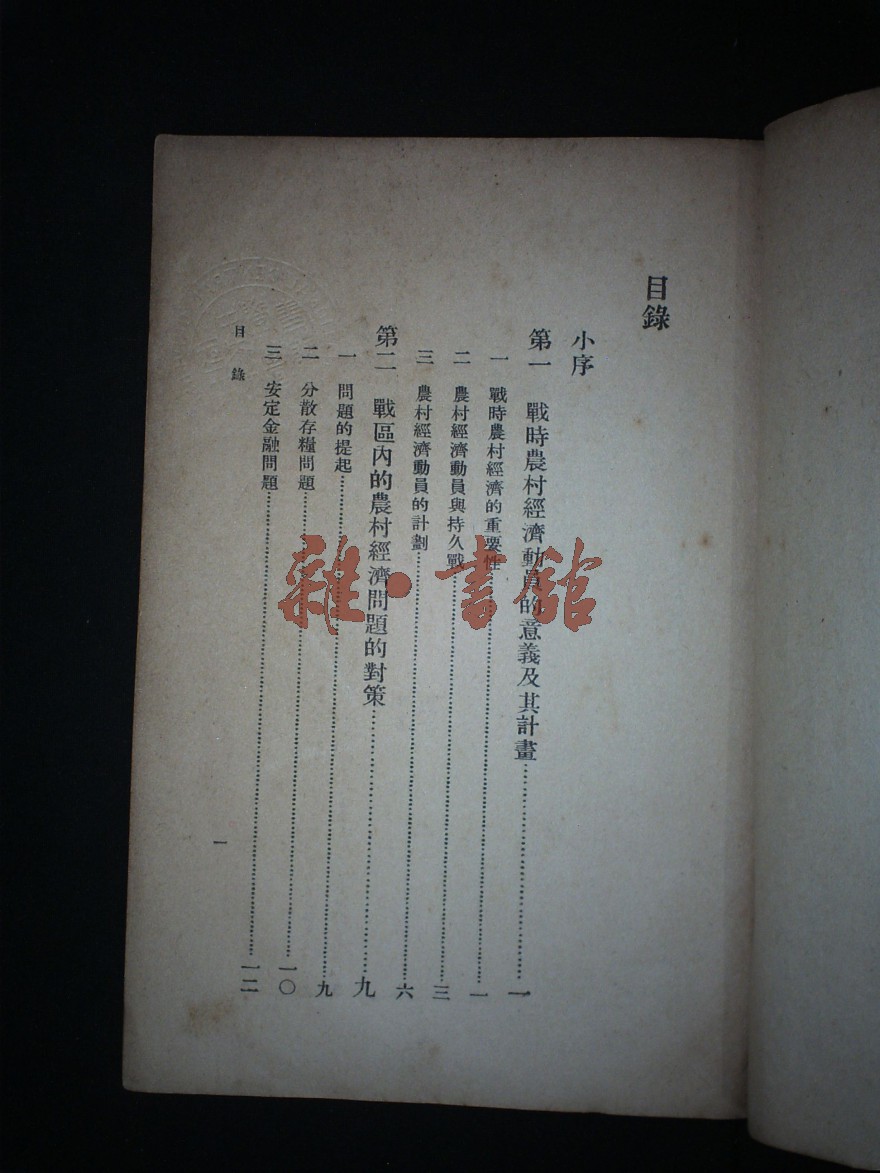 目錄
小序
第一 戰時農村經濟動員的意義及其計畫……一
一 戰時農村經濟的重要性……一
二 農村經濟動員與持久戰……三
三 農村經濟動員的計劃……六
第二 戰區內的農村經濟問題的對策……九
一 問題的提起……九
二 分散存糧問題……一〇
三 安定金融問題……一二
目錄
一
雜·書館